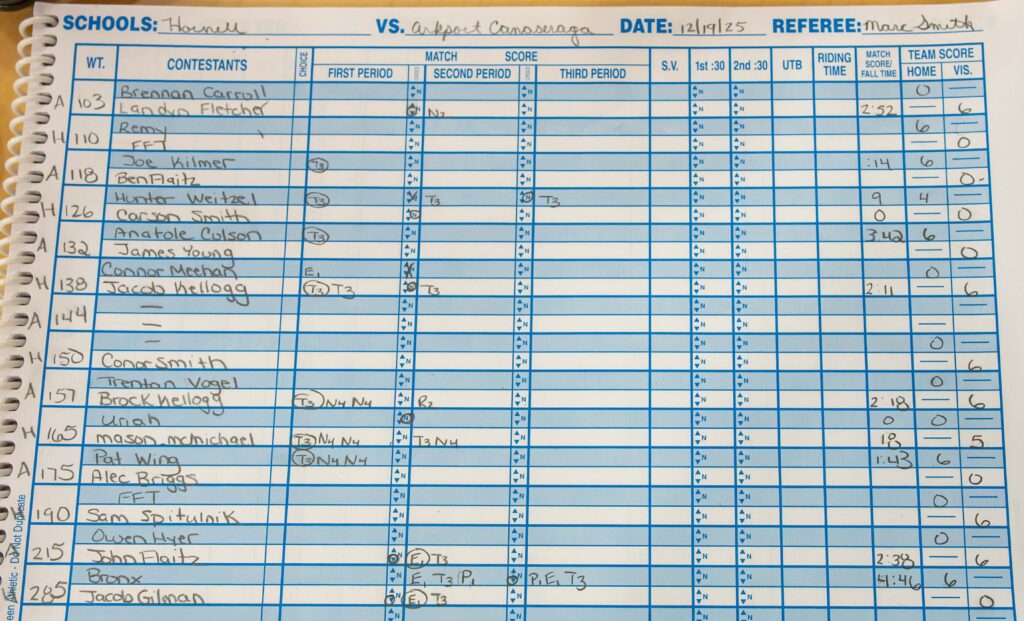 SCHOOLS: Hornell VS. Arkport Canaseraga DATE: 12/19/25 REFEREE: Marc Smith
WT. CONTESTANTS CHOICE MATCH SCORE S.V. 1st :30 2nd :30 UTB RIDING TIME MATCH SCORE/ FALL TIME TEAM SCORE
FIRST PERIOD SECOND PERIOD THIRD PERIOD HOME VIS.
Brennan Carroll 0 —
A 103 Landyn Fletcher N2 2:52 — 6
Remy 6 —
H 110 FFT — 0
Joe Kilmer T3 :14 6 —
A 118 Ben Flaitz — 0
Hunter Weitzel T3 T3 T3 9 4 —
H 126 Carson Smith 0 — 0
Anatole Colson T3 3:42 6 —
A 132 James Young — 0
Connor Meehan E1 0 —
H 138 Jacob Kellogg T3 T3 T3 2:11 — 6
—
A 144 — —
— 0 —
H 150 Conor Smith 6
Trenton Vogel 0 —
A 157 Brock Kellogg T3 N4 N4 R2 2:18 — 6
Uriah 0 0 —
H 165 mason mcmichael T3 N4 N4 T3 N4 18 — 5
Pat Wing T3 N4 N4 1:43 6 —
A 175 Alec Briggs — 0
FFT 0 —
H 190 Sam Spitulnik — 6
Owen Hyer 0 —
A 215 John Flaitz E1 T3 2:38 — 6
Bronx E1 T3 P1 P1 E1 T3 4:46 6 —
H 285 Jacob Gilman E1 T3 — 0
een Athletic - Do Not Duplicate